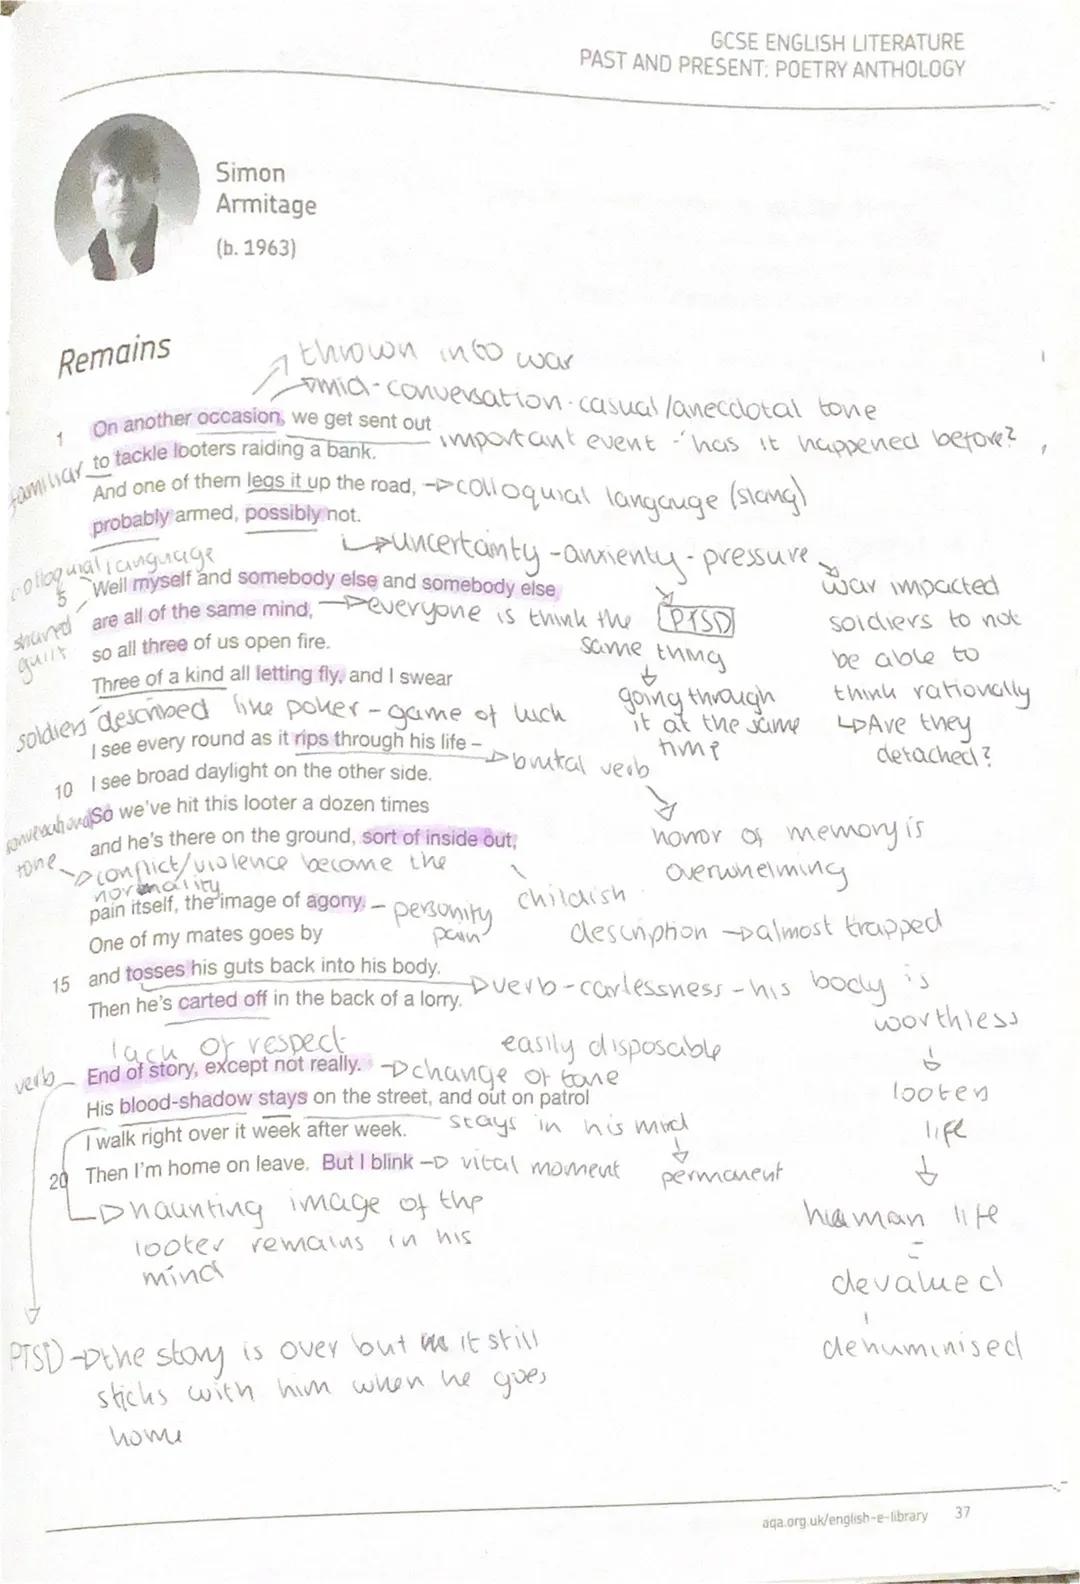 GCSE ENGLISH LITERATURE
PAST AND PRESENT: POETRY ANTHOLOGY
Simon
Armitage
(b. 1963)
Remains
thrown into war
mid-conversation. casual/anecdotal tone
1 On another occasion, we get sent out
important event - 'has it happened before?
familiar
to tackle looters raiding a bank.
And one of them legs it up the road, → colloquial langauge (slang)
probably armed, possibly not.
↳ uncertainty - anxienty - pressure
colloquial language
5 Well myself and somebody else and somebody else
war impacted
soldiers to not
be able to
think rationally
↳ Are they
detached?
shared
guilt
are all of the same mind, → everyone is think the
same thing
[PTSD]
going through
it at the same
time
so all three of us open fire.
Three of a kind all letting fly, and I swear
soldiers described like poker - game of luck
I see every round as it rips through his life –
→ brutal verb
horror of memory is
overwhelming
10 I see broad daylight on the other side.
So we've hit this looter a dozen times
conversational
tone
and he's there on the ground, sort of inside out,
→ conflict/violence become the
normality
childish
description → almost trapped
pain itself, the image of agony. - personify
pain
One of my mates goes by
15 and tosses his guts back into his body.
→ verb - carlessness - his body is
worthless
↓
looters
life
↓
human life
=
devalued
dehuminised
Then he's carted off in the back of a lorry.
lack of respect
easily disposable
verb
End of story, except not really. → change of tone
His blood-shadow stays on the street, and out on patrol
I walk right over it week after week.
stays in his mind
↓
permanent
20 Then I'm home on leave. But I blink → vital moment
↳ haunting image of the
looter remains in his
mind
PTSD → the story is over but it still
sticks with him when he goes
home
aqa.org.uk/english-e-library 37